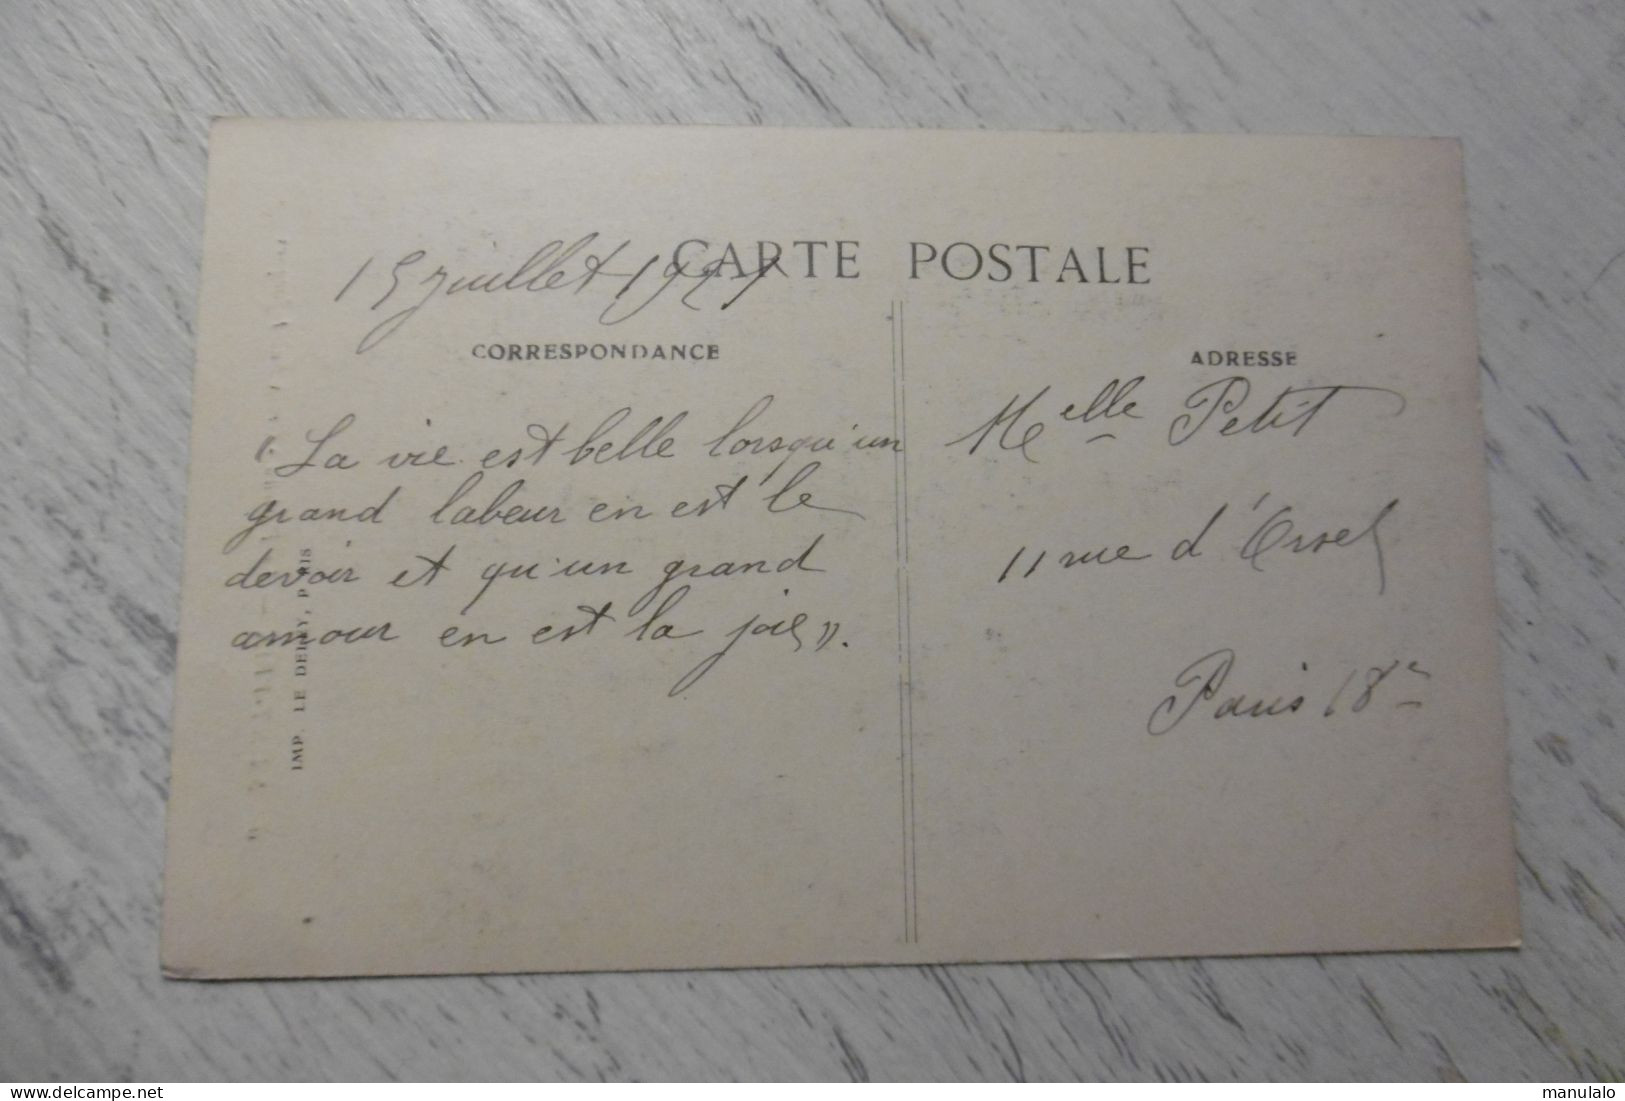 CARTE POSTALE
15 juillet 1921
CORRESPONDANCE
"La vie est belle lorsqu'un
grand labeur en est le
devoir et qu'un grand
amour en est la joie".
ADRESSE
Melle Petit
11 rue d'Orsel
Paris 18e
IMP. LE DELEY, PARIS
https://www.delcampe.net
manulalo